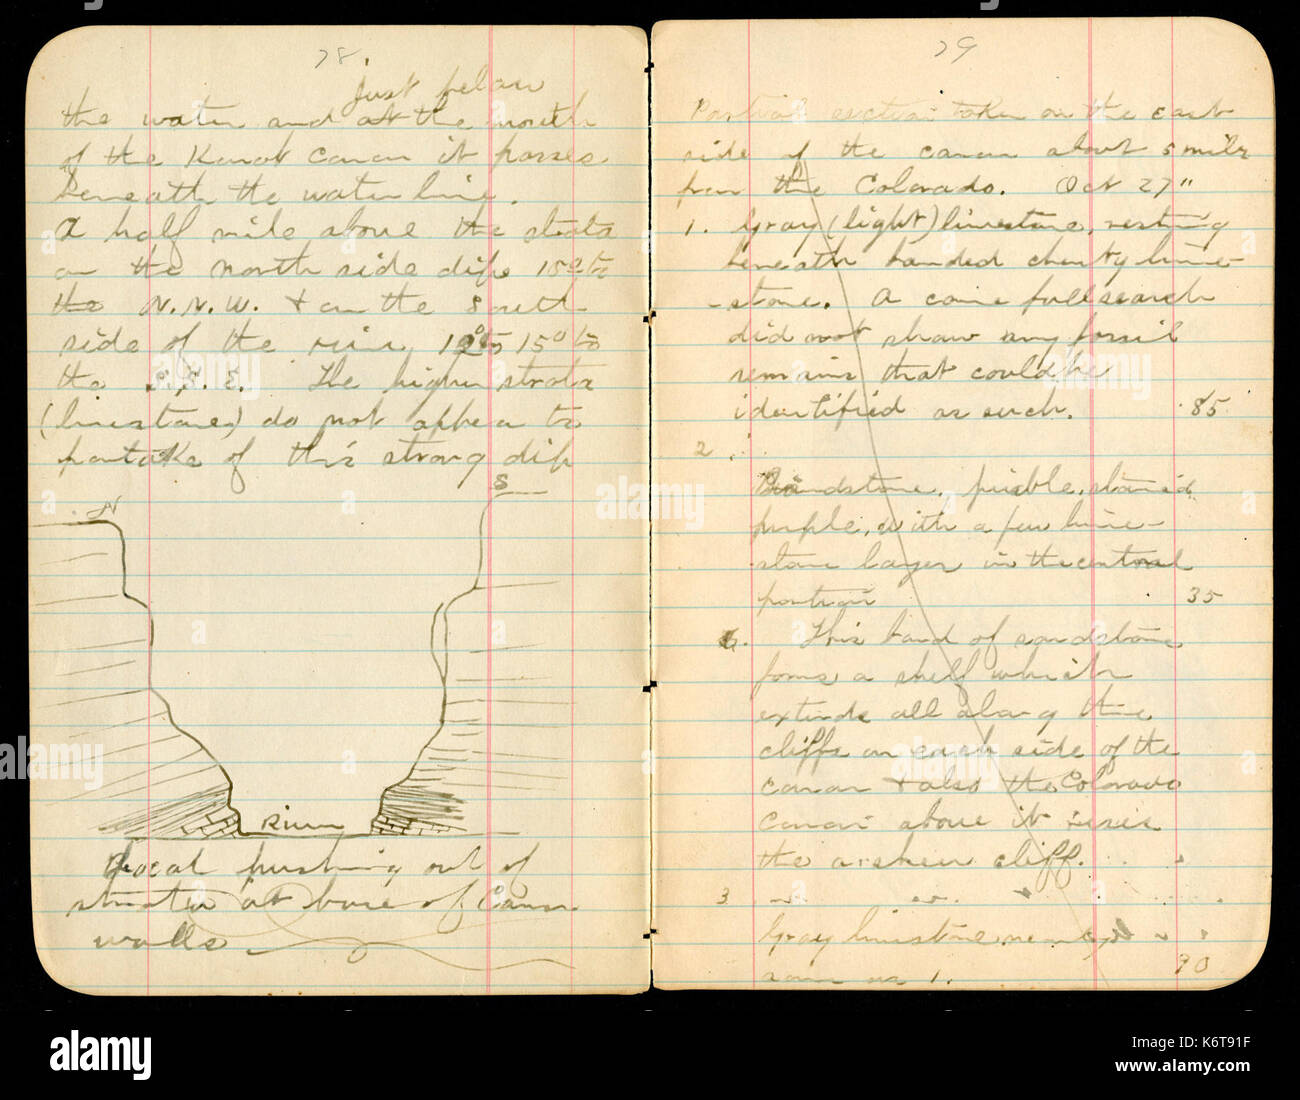 78
just below
the water and at the mouth
of the Kanab Canon it passes
beneath the water line.
A half mile above the strata
on the north side dips 15° to
the N.N.W. & on the South
side of the river 12° to 15° to
the S.S.E. The higher strata
(limestones) do not appear to
partake of this strong dip
N
S
River
Local pushing out of
strata at base of Canon
walls
79
Partial section taken on the east
side of the canon about 5 miles
from the Colorado. Oct 27"
1. Gray (light) limestone, resting
beneath banded cherty lime-
-stone. A careful search
did not show any fossil
remains that could be
identified as such. 85
2
Sandstone, friable, stained
purple, with a few lime-
stone layers in the central
portion 35
This band of sandstone
forms a shelf which
extends all along the
cliffs on each side of the
canon & also the Colorado
Canon above it rises
the cliff.
3
Gray limestone
same as 1. 90
alamy
Image ID: K6T91F
www.alamy.com